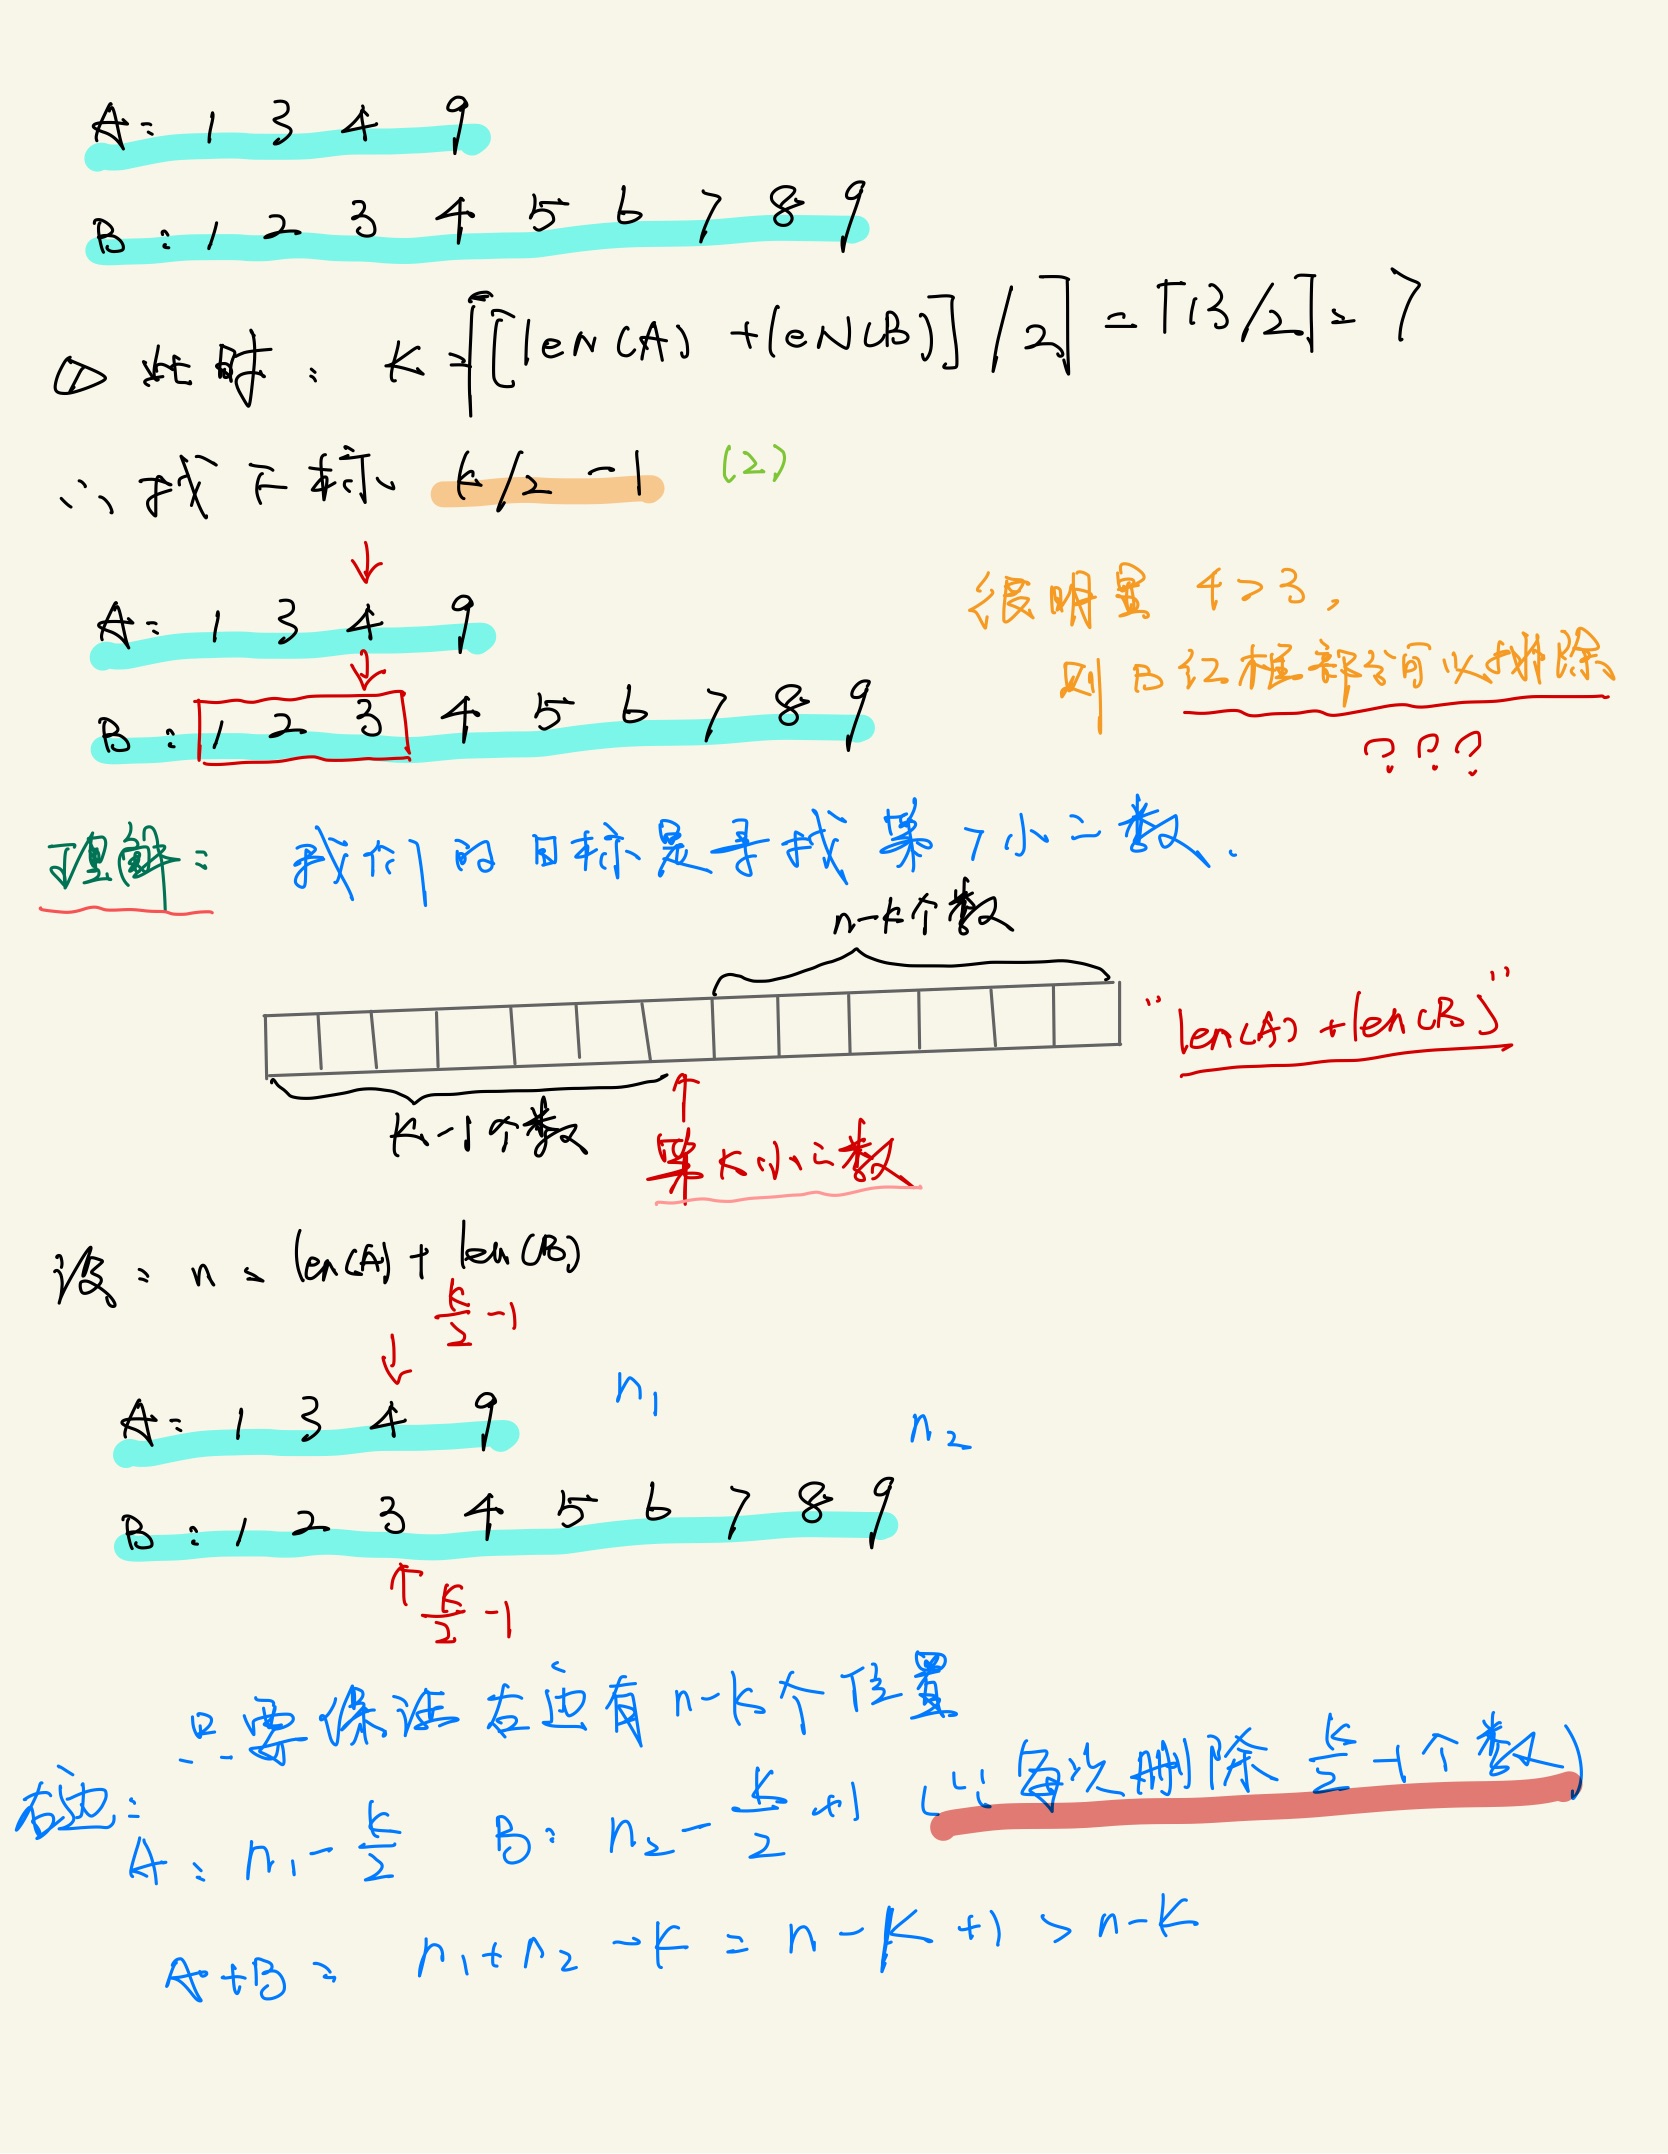 A: 1 3 4 9
B: 1 2 3 4 5 6 7 8 9
① 此时: K = ⌈[len(A) + len(B)] / 2⌉ = ⌈13/2⌉ = 7
∴ 找下标 k/2 - 1 (2)
A: 1 3 4 9
B: 1 2 3 4 5 6 7 8 9
很明显 4 > 3,
则 B 红框部分可以排除
???
理解: 我们的目标是寻找第7小的数.
n-k个数
"len(A) + len(B)"
K-1个数
第K小的数
设: n = len(A) + len(B)
k/2 - 1
A: 1 3 4 9
n₁
n₂
B: 1 2 3 4 5 6 7 8 9
k/2 - 1
∴ 只要保证右边有 n-k 个位置
右边:
A: n₁ - k/2 B: n₂ - k/2 + 1 (∵ 每次删除 k/2 - 1 个数)
A+B = n₁ + n₂ - K = n - K + 1 > n - K